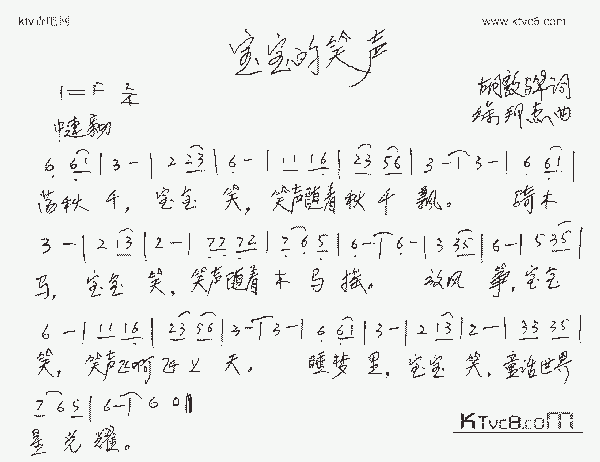 www.ktvc8.com
宝宝的笑声
1=F 2/4
胡敦骅词
中速
曲
6 61 | 3 - | 2 23 | 6 - | 11 16 | 23 56 | 3 - | 3 - | 6 61 |
荡秋千，宝宝笑，笑声随着秋千飘。骑木
3 - | 2 13 | 2 - | 77 72 | 7 65 | 6 - | 6 - | 3 35 | 6 - | 5 35 |
马，宝宝笑，笑声随着木马摇。放风筝，宝宝
6 - | 11 16 | 23 56 | 3 - | 3 - | 6 61 | 3 - | 2 13 | 2 - | 35 35 |
笑，笑声飞啊飞上天。睡梦里，宝宝笑，童话世界
7 65 | 6 - | 6 0 ‖
星光耀。
KTvc8.com